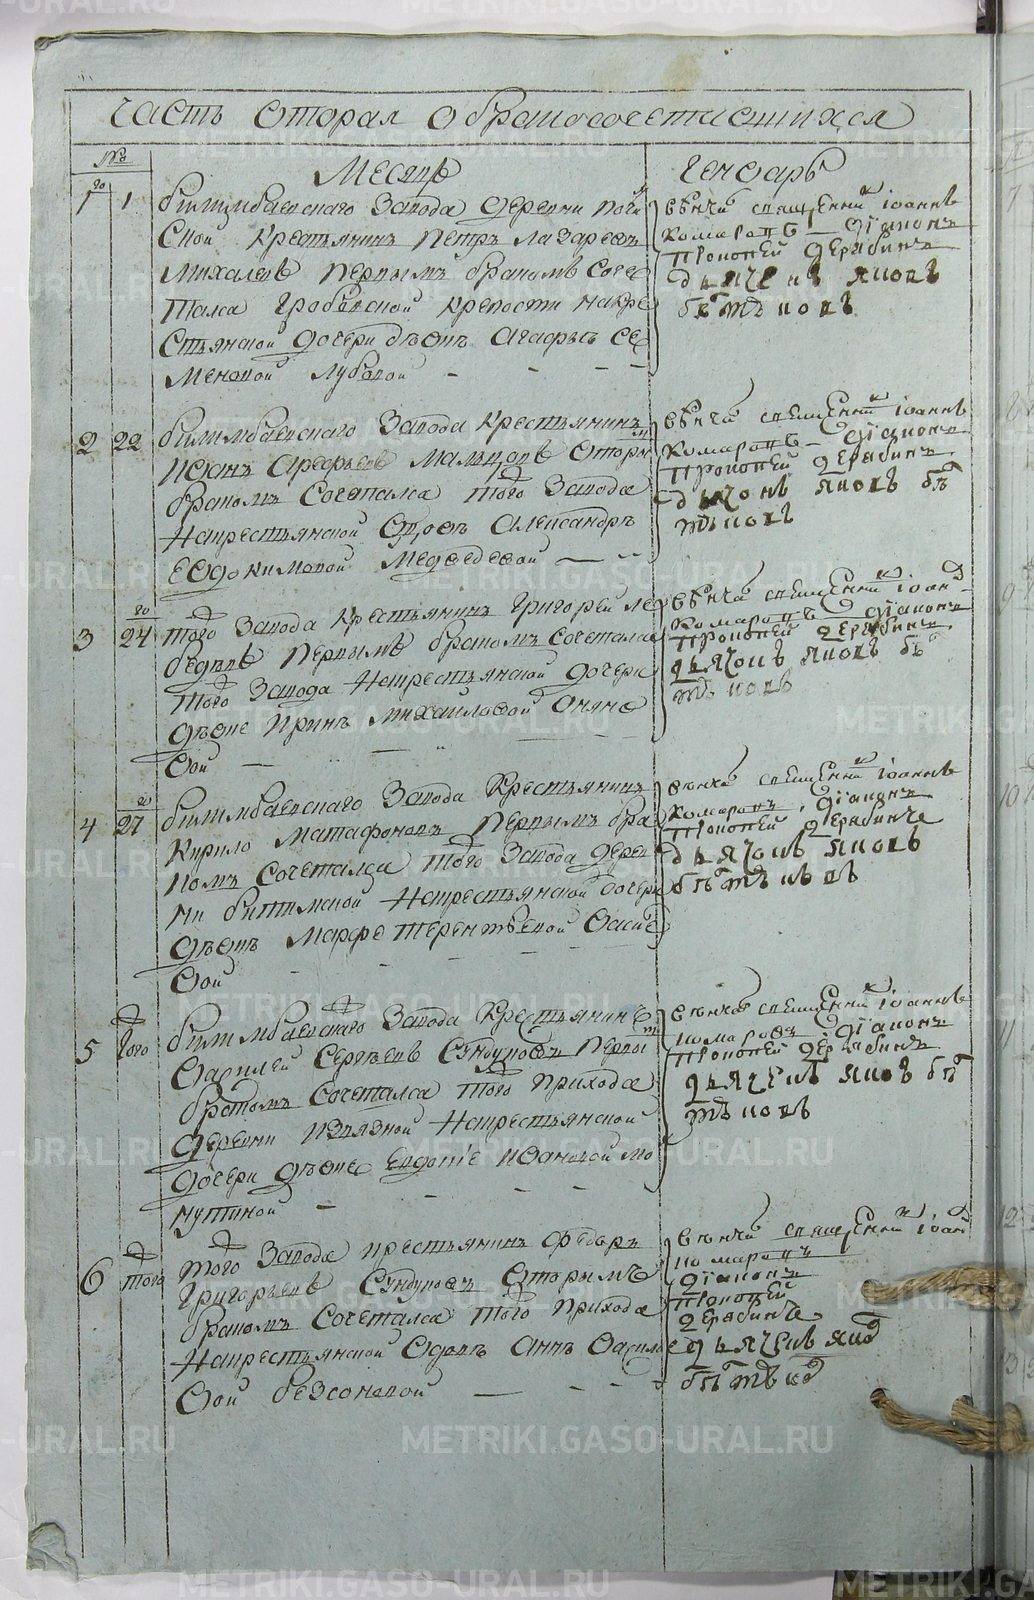 Часть вторая о бракосочетавшихся
№
Месяцъ Генварь
1 го 1
билимбаевскаго Завода деревни почи
нной крестьянинъ петръ лазаревъ
михалевъ первымъ бракомъ соче
тался гробовской крепости на кре
стьянской дочери девкъ агафьъ се
меновой лубовой
венча священникъ іоаннъ
комаровъ діаконъ
прокопей дерябинъ
дьячекъ яковъ
2 22
билимбаевскаго Завода крестьянинъ
иванъ арефьевъ мальцовъ вторы
бракомъ сочетался того Завода
на крестьянской вдовъ александръ
евдокимовой медведевой
венча священникъ іоаннъ
комаровъ діаконъ
прокопей дерябинъ
дьячокъ яковъ
3 24 го
того Завода крестьянинъ григорей ле
бедевъ первымъ бракомъ сочетался
того Завода на крестьянской дочери
девке иринъ михайловой
вой
венча священникъ іоаннъ
комаровъ діаконъ
прокопей дерябинъ
дьячокъ яковъ
4 27 го
билимбаевскаго Завода крестьянинъ
кирило матафоновъ первымъ бра
комъ сочетался того Завода дерев
ни битимской на крестьянской дочери
девкъ марфе терентьевой васиⷧе
вой
венча священникъ іоаннъ
комаровъ діаконъ
прокопей дерябинъ
дьячокъ яковъ
5 того
билимбаевскаго Завода крестьянинъ
василей сергеевъ сундуковъ первы
бракомъ сочетался того прихода
деревни на крестьянской
дочери девке евдокіе ивановой мо
кутиной
венча священникъ іоаннъ
комаровъ діаконъ
прокопей дерябинъ
дьячекъ яковъ
6 того
того Завода крестьянинъ федоръ
григорьевъ сундуковъ вторымъ
бракомъ сочетался того прихода
на крестьянской вдовъ аннъ василье
вой безсоновой
венча священникъ іоаннъ
комаровъ
діаконъ
прокопей
дерябинъ
дьячекъ яковъ
METRIKI.GASO-URAL.RU